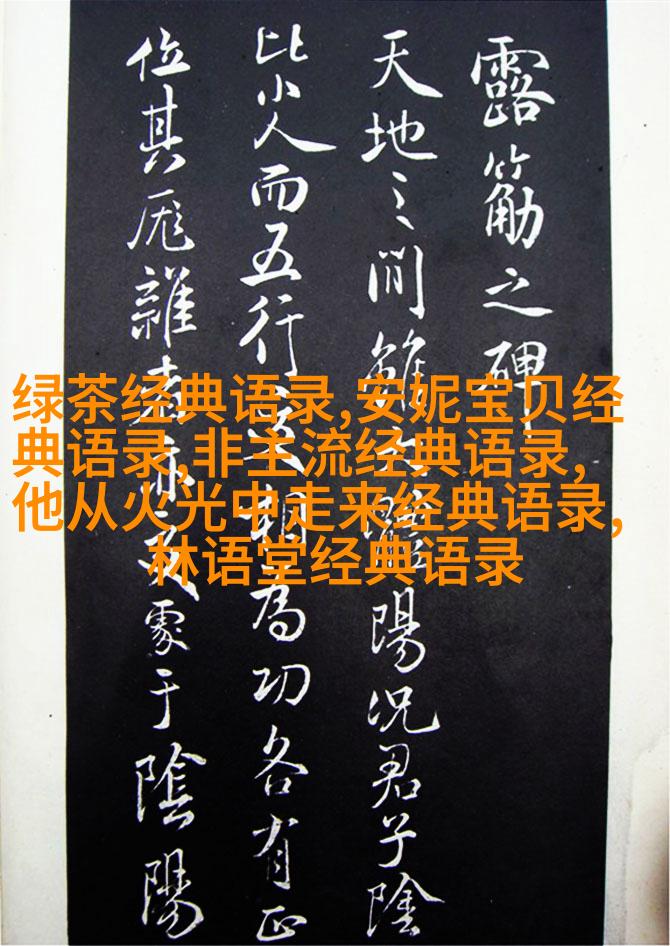 露筋之碑
天地之間雖陽況君子陰
比小人而五行相為功各有正
位其厖雜于陰陽
绿茶经典语录,安妮宝贝经
典语录,非主流经典语录,
他从火光中走来经典语录,
林语堂经典语录